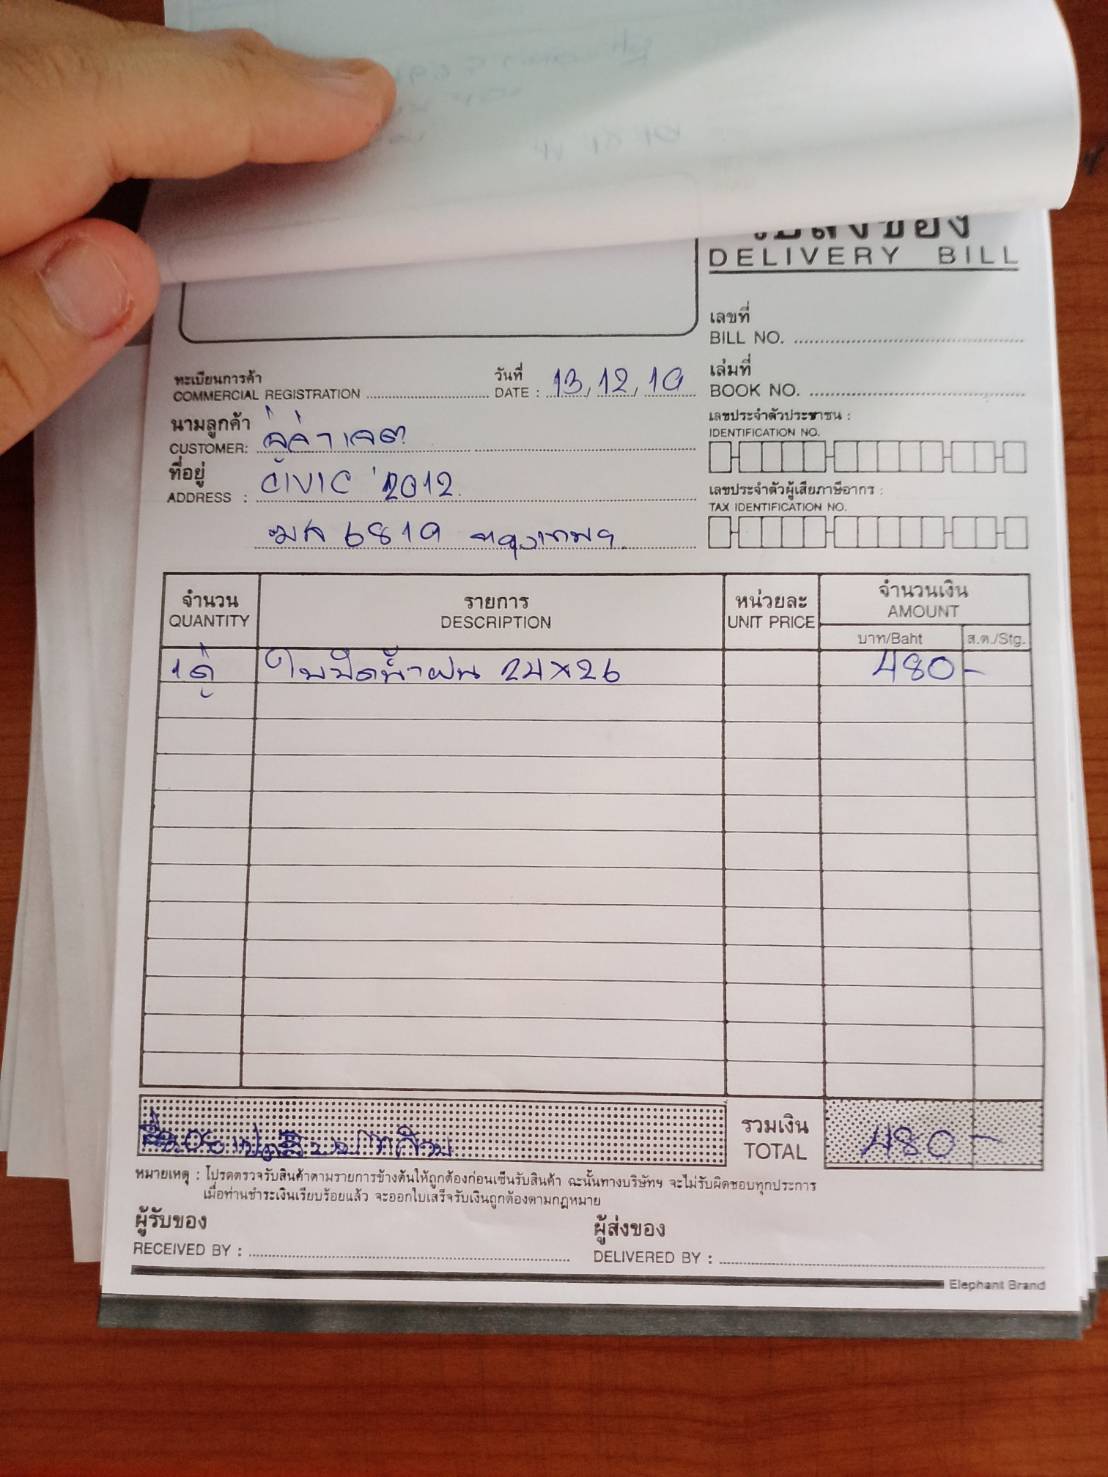 ใบส่งของ
DELIVERY BILL
เลขที่
BILL NO.
ทะเบียนการค้า
COMMERCIAL REGISTRATION
วันที่
DATE : 13, 12, 19
เล่มที่
BOOK NO.
นามลูกค้า
CUSTOMER:
เลขประจำตัวประชาชน :
IDENTIFICATION NO.
ที่อยู่
ADDRESS : CIVIC '2012
เลขประจำตัวผู้เสียภาษีอากร :
TAX IDENTIFICATION NO.
6819 กรุงเทพฯ
จำนวน
QUANTITY
รายการ
DESCRIPTION
หน่วยละ
UNIT PRICE
จำนวนเงิน
AMOUNT
บาท/Baht
ส.ต./Stg.
1คู่ ใบปัดน้ำฝน 24x26 480-
รวมเงิน
TOTAL
480-
หมายเหตุ : โปรดตรวจรับสินค้าตามรายการข้างต้นให้ถูกต้องก่อนเซ็นรับสินค้า ฉะนั้นทางบริษัทฯ จะไม่รับผิดชอบทุกประการ
เมื่อท่านชำระเงินเรียบร้อยแล้ว จะออกใบเสร็จรับเงินถูกต้องตามกฎหมาย
ผู้รับของ
RECEIVED BY :
ผู้ส่งของ
DELIVERED BY :
Elephant Brand